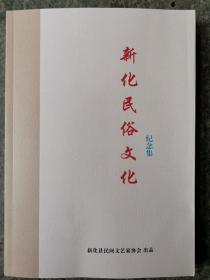 新化民俗文化
纪念集
新化县民间文艺家协会 出品